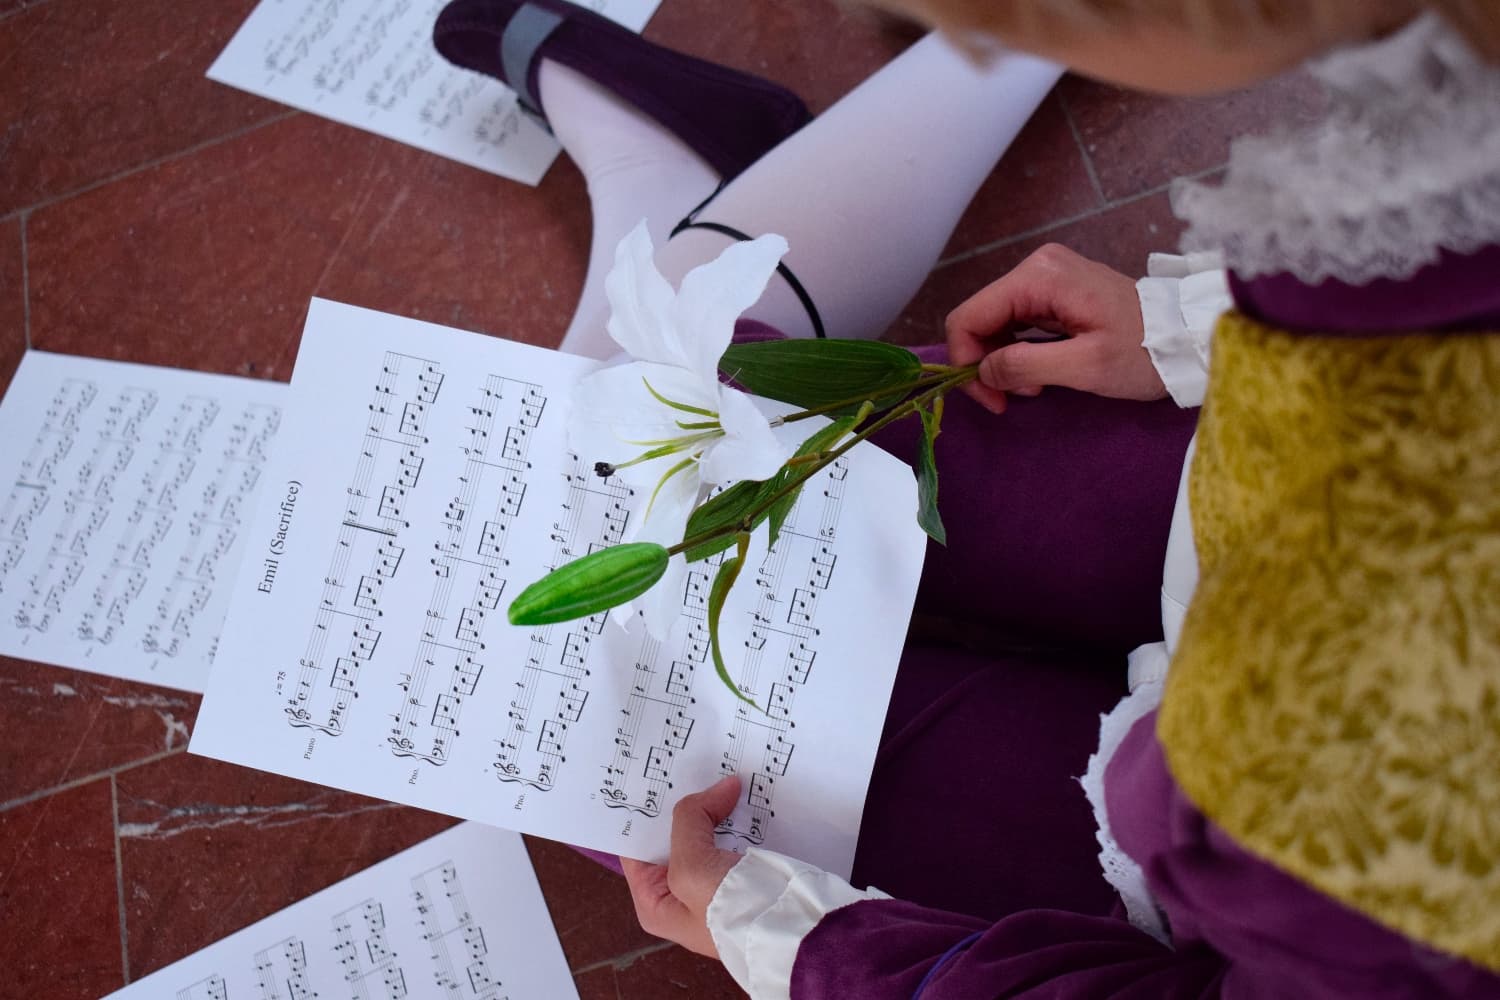 Emil (Sacrifice)
♩ = 75
Piano
Pno.
Pno.
Pno.